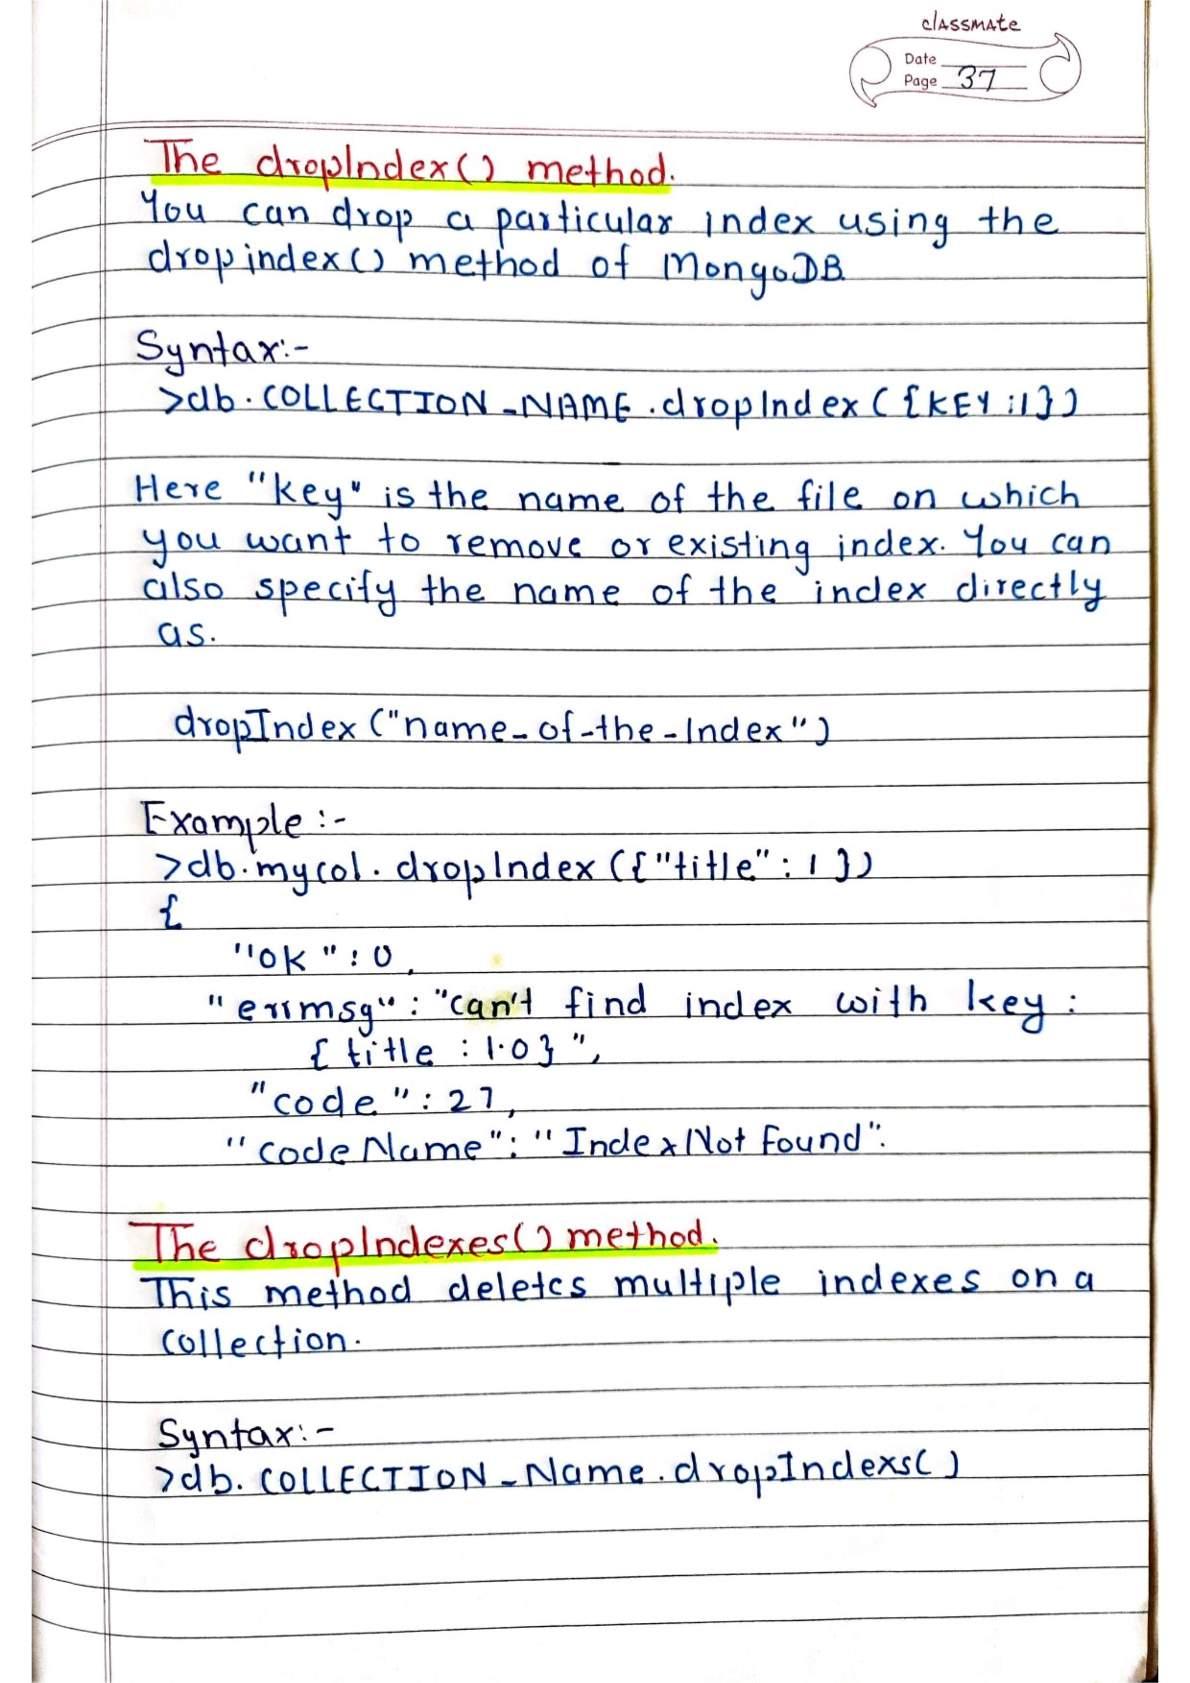 classmate
Date
Page 37
The dropIndex() method.
You can drop a particular index using the
dropindex() method of MongoDB
Syntax:-
>db.COLLECTION_NAME.dropIndex({KEY:1})
Here "key" is the name of the file on which
you want to remove or existing index. You can
also specify the name of the index directly
as.
dropIndex("name-of-the-Index")
Example:-
>db.mycol.dropIndex({"title":1})
{
"ok":0,
"errmsg":"can't find index with key:
{title:1.0}",
"code":27,
"codeName":"IndexNotFound".
The dropIndexes() method.
This method deletes multiple indexes on a
collection.
Syntax:-
>db.COLLECTION_Name.dropIndexs()